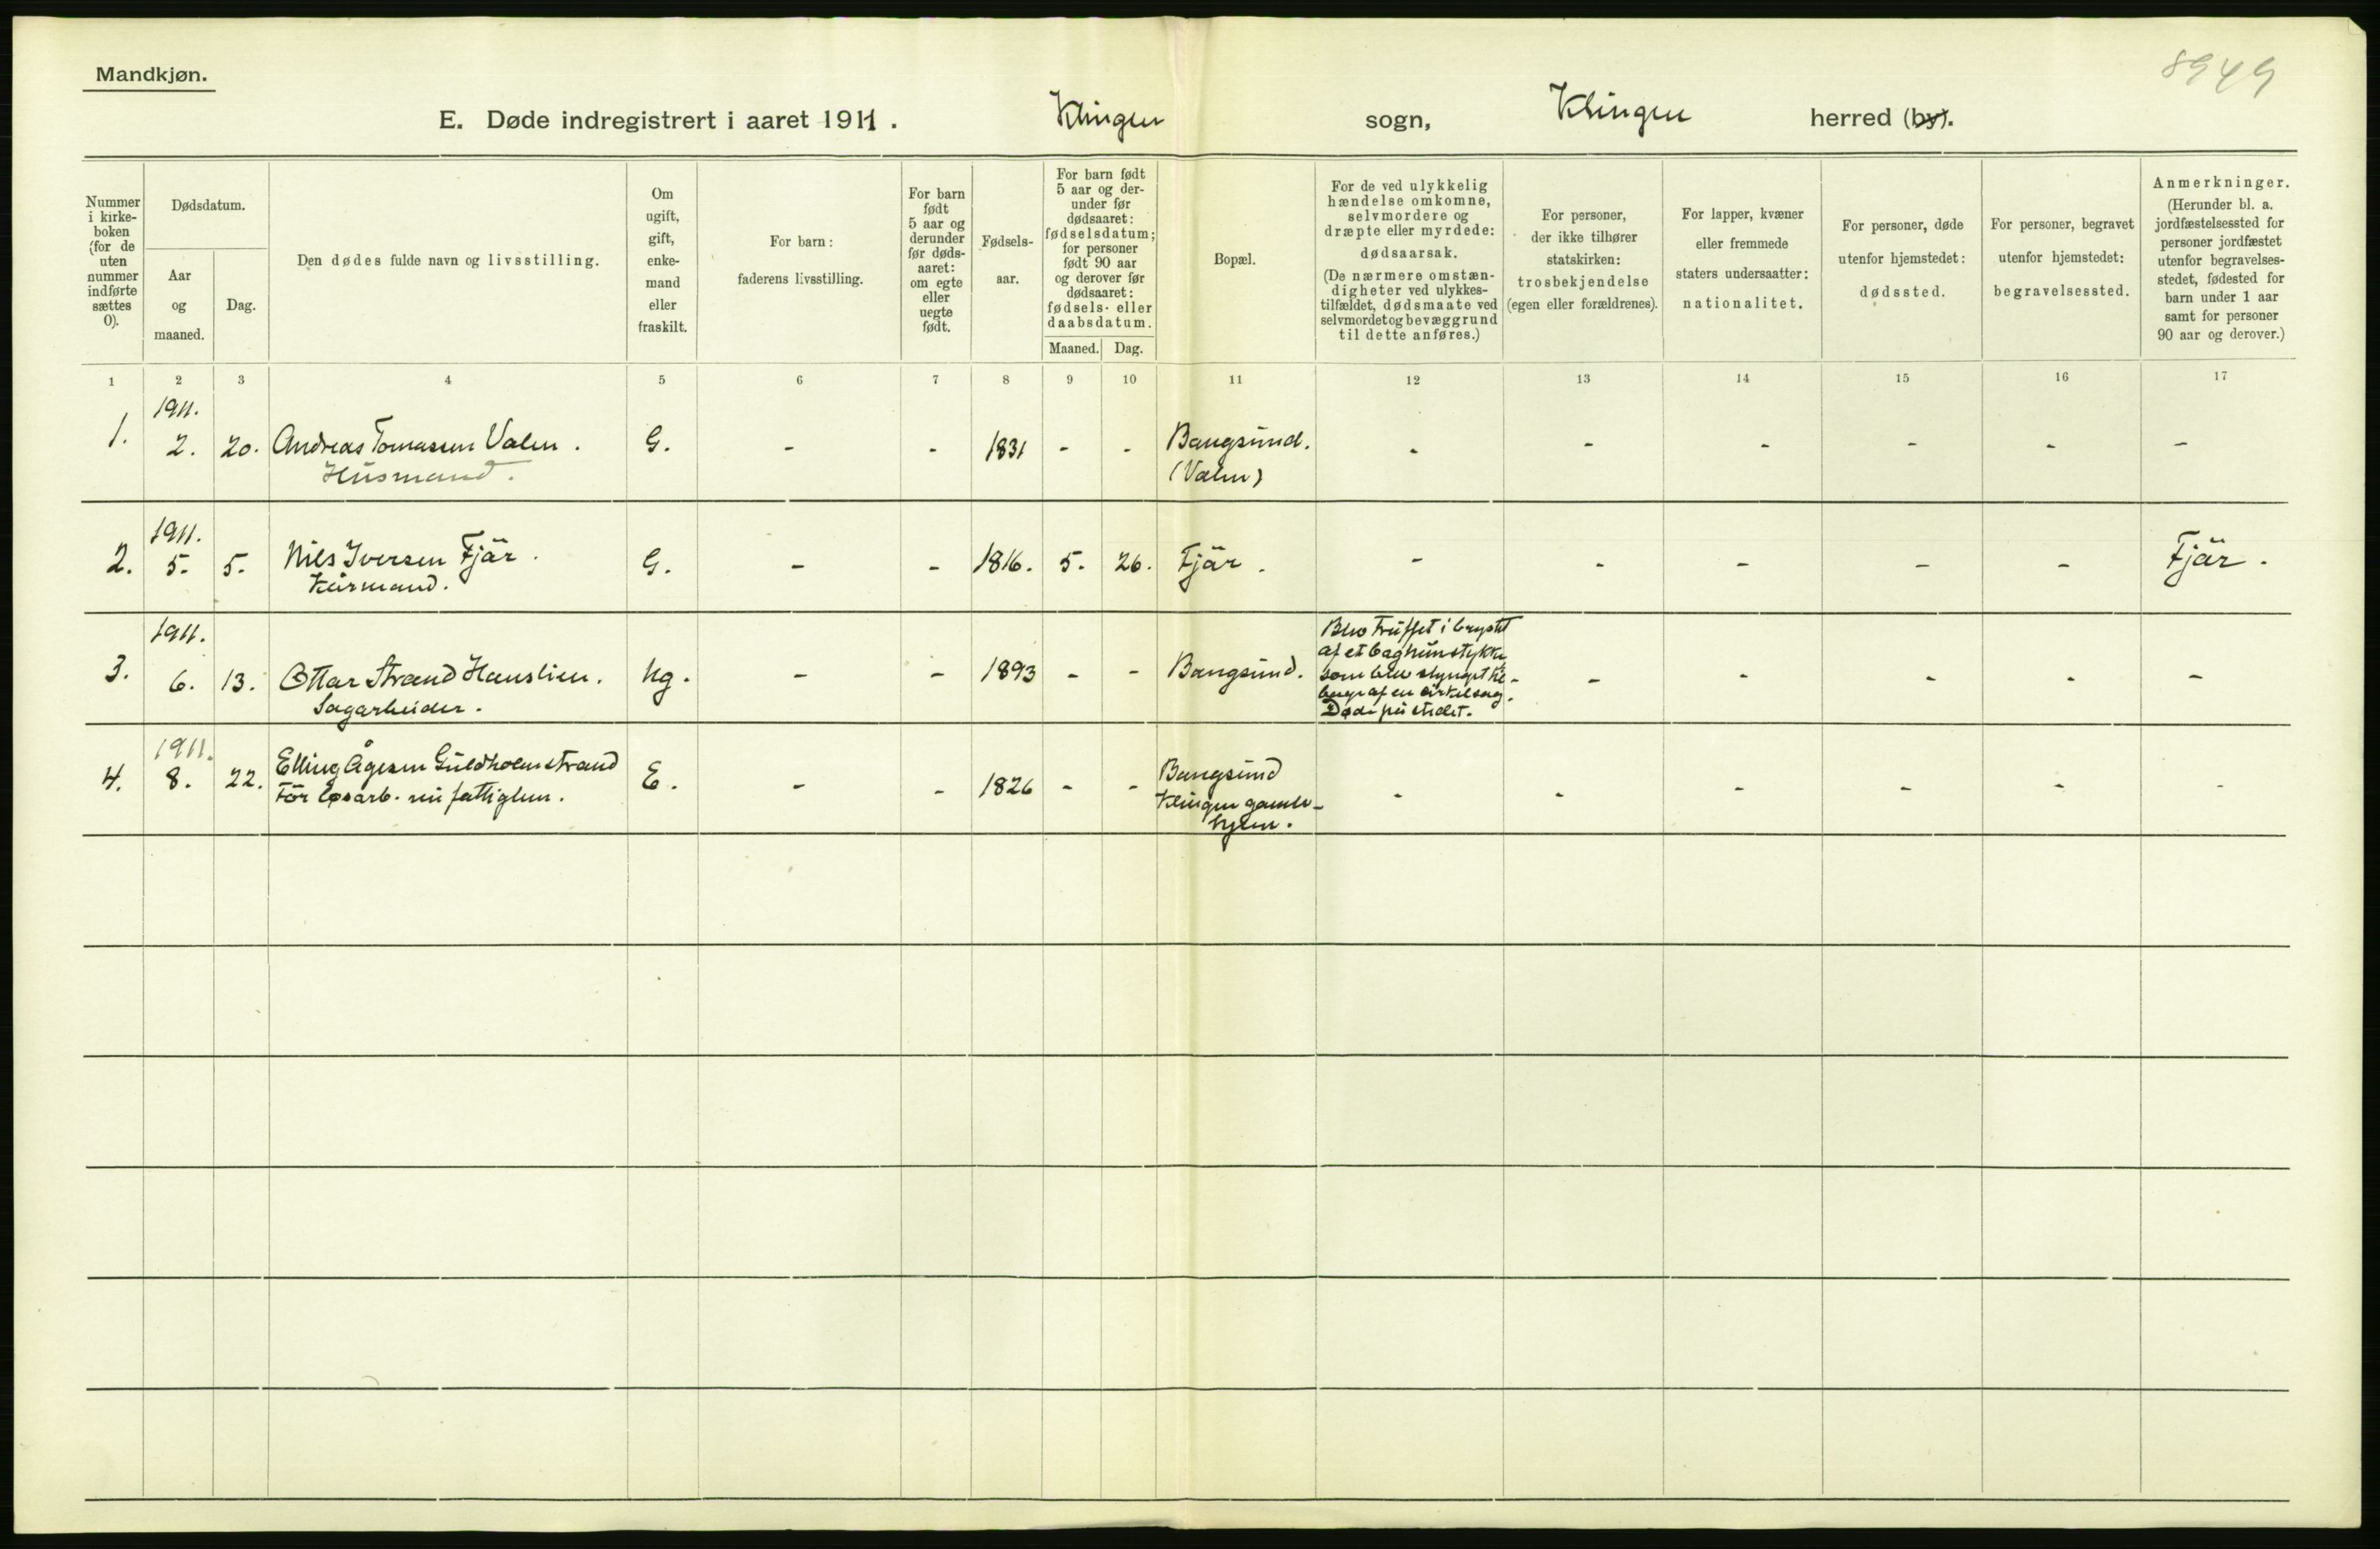 Mandkjøn.
8949
E. Døde indregistrert i aaret 1911. Klingen sogn, Klingen herred (by).
Nummer i kirke-boken (for de uten nummer indførte sættes 0).
Dødsdatum.
Aar og maaned.
Dag.
Den dødes fulde navn og livsstilling.
Om ugift, gift, enke-mand eller fraskilt.
For barn: faderens livsstilling.
For barn født 5 aar og derunder før døds-aaret: om egte eller uegte født.
Fødsels-aar.
For barn født 5 aar og der-under før dødsaaret: fødselsdatum; for personer født 90 aar og derover før dødsaaret: fødsels- eller daabsdatum.
Maaned. Dag.
Bopæl.
For de ved ulykkelig hændelse omkomne, selvmordere og dræpte eller myrdede: dødsaarsak.
(De nærmere omstæn-digheter ved ulykkes-tilfældet, dødsmaate ved selvmordet og bevæggrund til dette anføres.)
For personer, der ikke tilhører statskirken: trosbekjendelse (egen eller forældrenes).
For lapper, kvæner eller fremmede staters undersaatter: nationalitet.
For personer, døde utenfor hjemstedet: dødssted.
For personer, begravet utenfor hjemstedet: begravelsessted.
Anmerkninger.
(Herunder bl. a. jordfæstelsessted for personer jordfæstet utenfor begravelses-stedet, fødested for barn under 1 aar samt for personer 90 aar og derover.)
1 2 3 4 5 6 7 8 9 10 11 12 13 14 15 16 17
1911.
1. 2. 20. Andreas Tomassen Valen. G. - - 1831 - - Bangsund. - - - - - -
Husmand. (Valen)
1911.
2. 5. 5. Nils Iversen Fjär. G. - - 1816. 5. 26. Fjär. - - - - - Fjär.
Kårmand.
1911.
3. 6. 13. Ottar Strand Hanslien. Ug. - - 1893 - - Bangsund. - - - - -
Sagarbeider.
Blev truffet i brystet
af et baghunstykke
som blev slynget til-
bage af en cirkelsag.
Døde på stedet.
1911.
4. 8. 22. Elling Ågesen Guldholmstrand E. - - 1826 - - Bangsund - - - - - -
Før løsarb. nu fattiglem. Klingen gamle-
hjem.